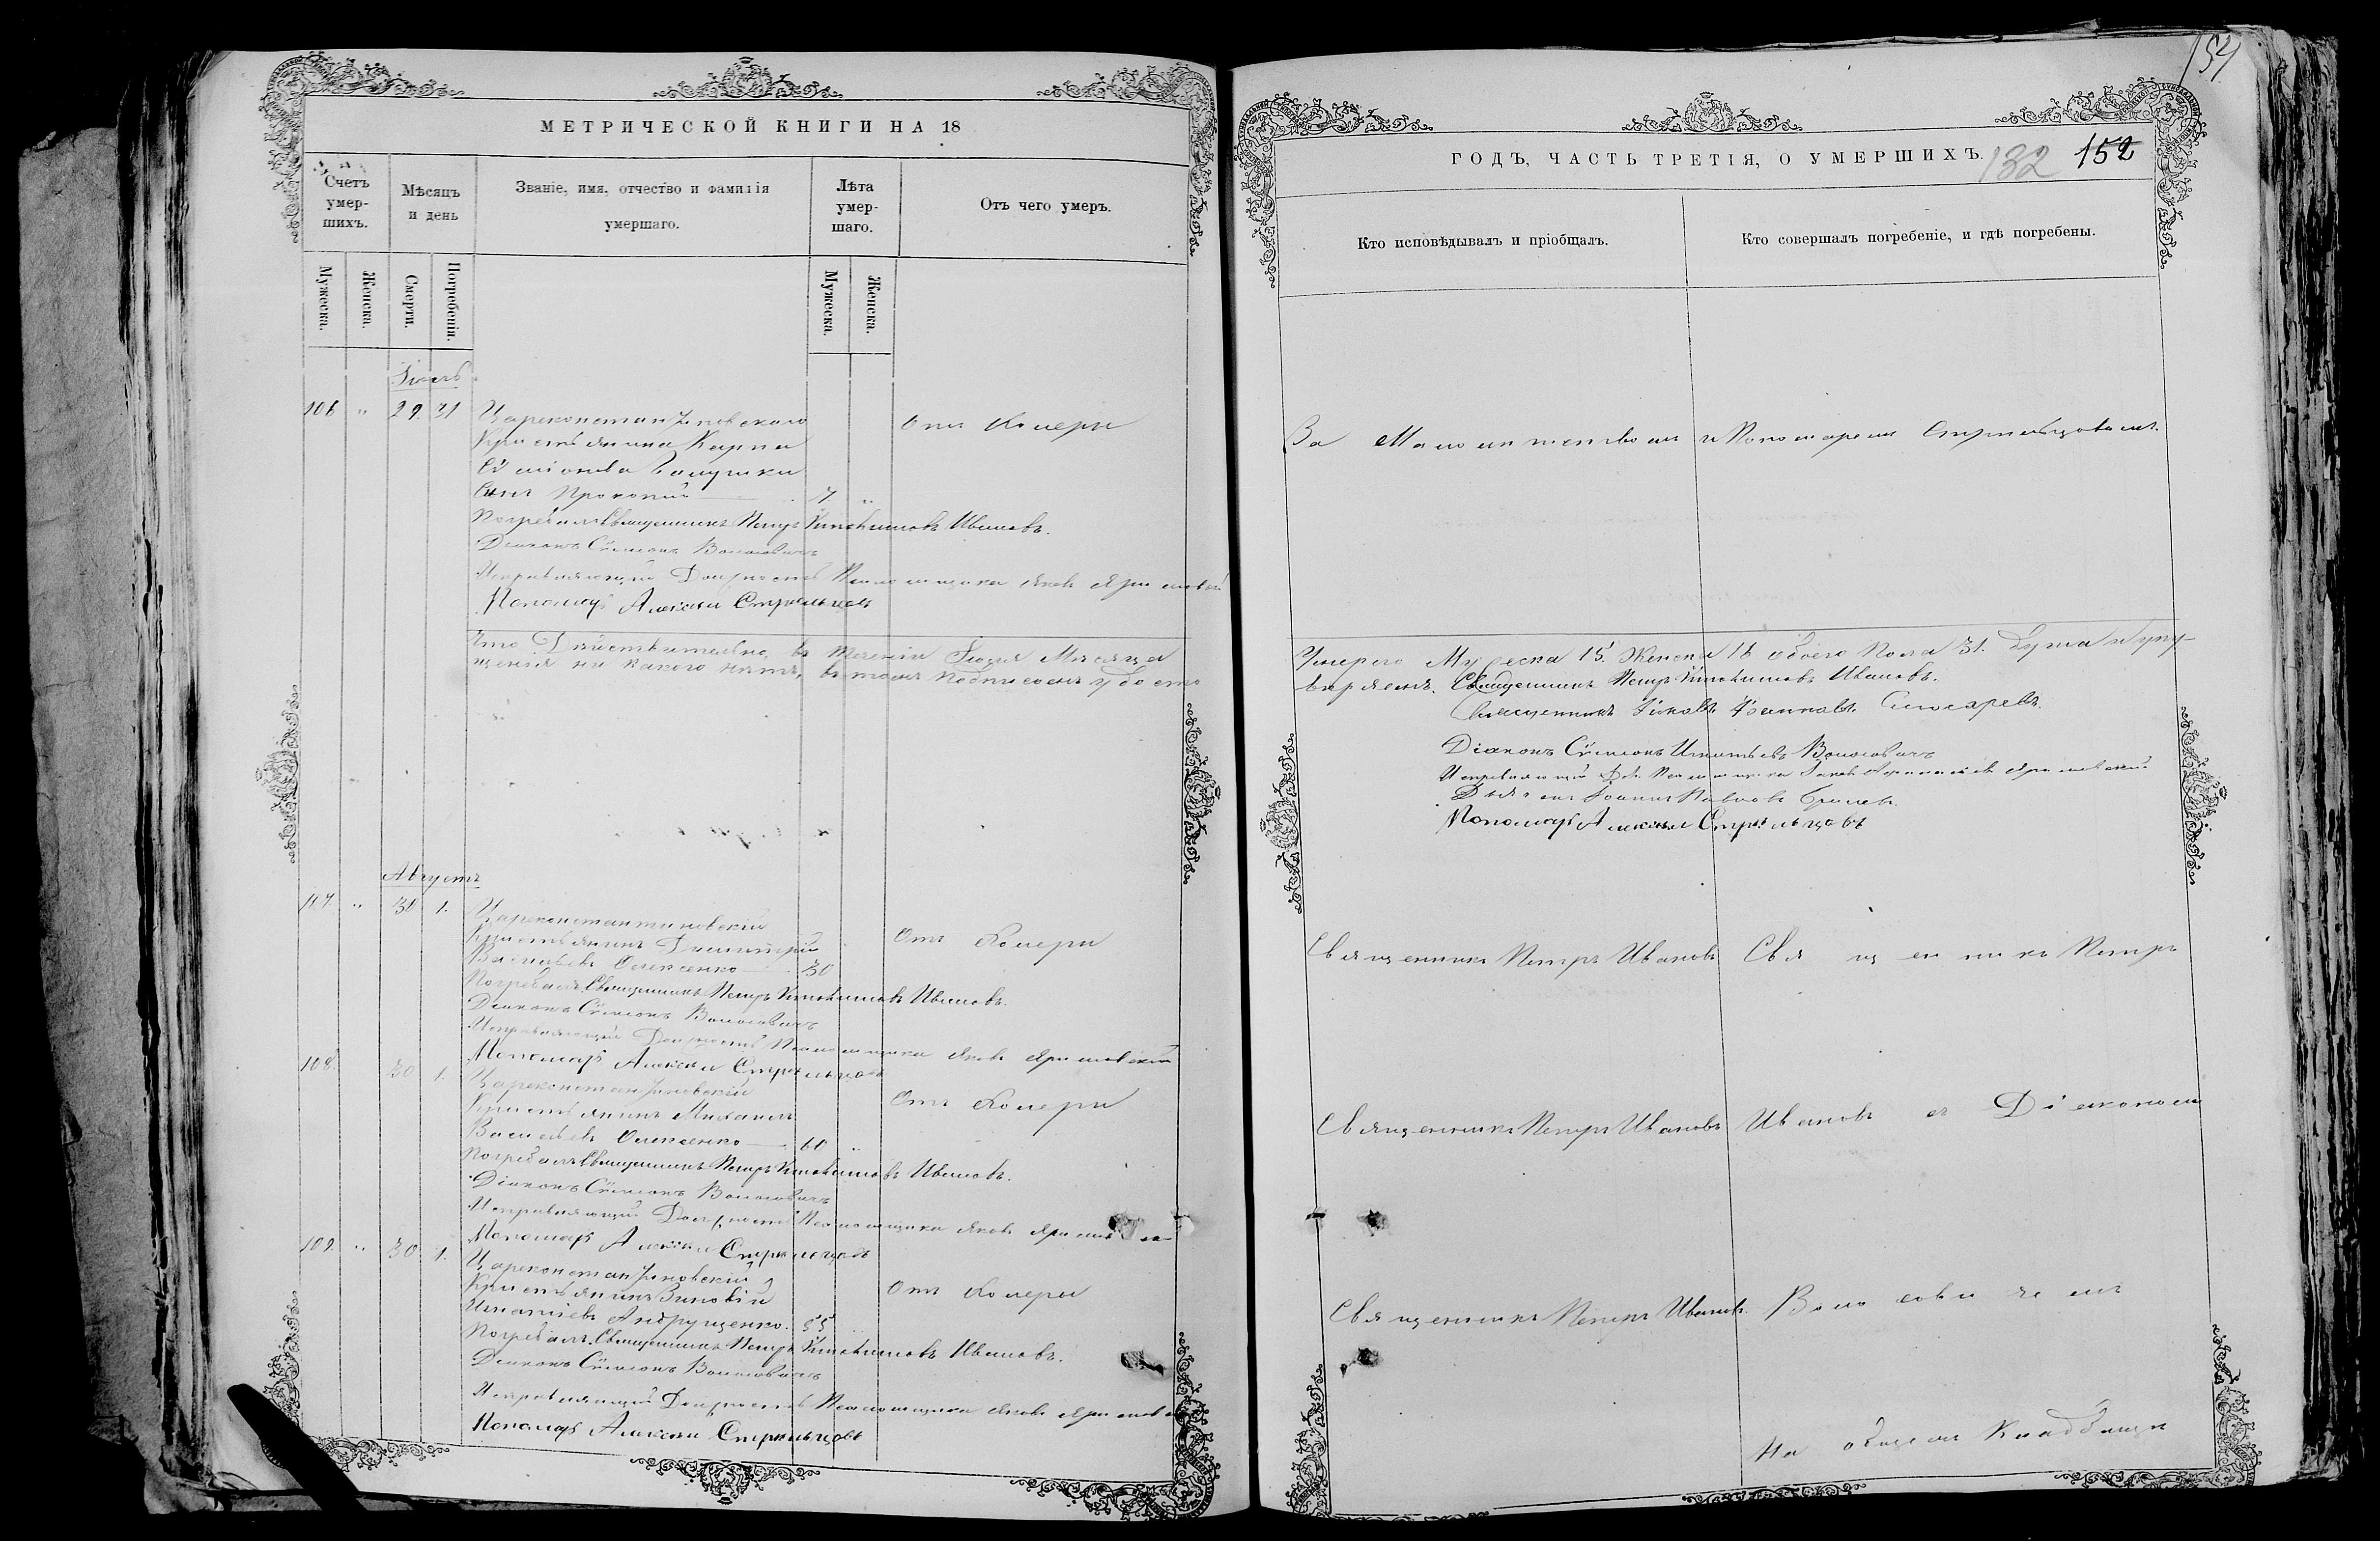 МЕТРИЧЕСКОЙ КНИГИ НА 18
Счетъ умер-шихъ.
Мѣсяцъ и день
Званіе, имя, отчество и фамилія умершаго.
Лѣта умер-шаго.
Отъ чего умеръ.
Мужеска.
Женска.
Смерти.
Погребенія.
Мужеска.
Женска.
Іюль
106 " 29. 31
Цареконстантиновскаго
Крестьянина Карпа
Сынъ Прокопій 7. "
Отъ Холеры
Погребалъ Священникъ Петръ Ивановъ.
Діаконъ Сѵмеонъ Волосовичъ
Исправляющій Должность Псаломщика Яковъ
Пономарь Алексѣй Стрѣльцовъ
Что Дѣйствительно, въ теченіи Іюля Мѣсяца
щенія ни какого нѣтъ, въ томъ подписомъ удосто
Августъ
107. " 30 1.
Цареконстантиновскій
Крестьянинъ Димитрій
Васильевъ Олексенко 30
Отъ Холеры
Погребалъ Священникъ Петръ Ивановъ.
Діаконъ Сѵмеонъ Волосовичъ
Исправляющій Должность Псаломщика Яковъ
Пономарь Алексѣй Стрѣльцовъ
108. 30 1.
Цареконстантиновскій
Крестьянинъ Михаилъ
Васильевъ Олексенко 60 "
Отъ Холеры
Погребалъ Священникъ Петръ Ивановъ.
Діаконъ Сѵмеонъ Волосовичъ
Исправляющій Должность Псаломщика Яковъ
Пономарь Алексѣй Стрѣльцовъ
109. " 30. 1.
Цареконстантиновскій
Крестьянинъ Зиновій
Игнатіевъ Андрущенко. 55
Отъ Холеры
Погребалъ Священникъ Петръ Ивановъ.
Діаконъ Сѵмеонъ Волосовичъ
Исправляющій Должность Псаломщика Яковъ
Пономарь Алексѣй Стрѣльцовъ
154
ГОДЪ, ЧАСТЬ ТРЕТІЯ, О УМЕРШИХЪ.
132 152
Кто исповѣдывалъ и пріобщалъ.
Кто совершалъ погребеніе, и гдѣ погребены.
За Малолитствомъ
и Пономаремъ Стрѣльцовымъ.
Умерло Мужеска 15. Женска 16 обоего пола 31. Душа и упу-
вѣряемъ. Священникъ Петръ Ивановъ.
Священникъ Іаковъ Іоанновъ Слюсаревъ.
Діаконъ Сѵмеонъ Игнатьевъ Волосовичъ
Исправляющій Дол. Псаломщика
Іоаннъ Павловъ
Пономарь Алексѣй Стрѣльцовъ
Священникъ Петръ Ивановъ
Священникъ Петръ
Священникъ Петръ Ивановъ
Ивановъ съ Діакономъ
Священникъ Петръ Ивановъ.
Волосовичемъ
На общемъ Кладбищѣ